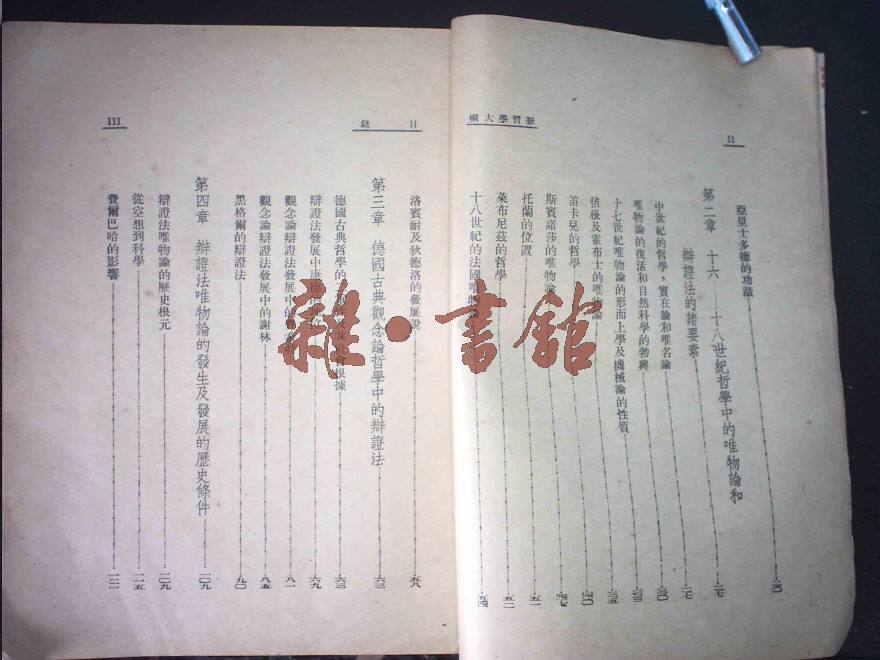 新哲學大綱
11
亞里士多德的功蹟
第二章 十六——十八世紀哲學中的唯物論和
辯證法的諸要素 二七
中世紀的哲學，實在論和唯名論 三〇
唯物論的復活和自然科學的勃興 三三
十七世紀唯物論的形而上學及機械論的性質 三五
倍根及霍布士的唯物論 四〇
笛卡兒的哲學
斯賓諾莎的唯物論 四七
托蘭的位置 五一
萊布尼茲的哲學 五二
十八世紀的法國唯物論 五四
目錄
111
洛賓耐及狄德洛的發展說 五八
第三章 德國古典觀念論哲學中的辯證法 六三
德國古典哲學的 根據 六三
辯證法發展中康德的 六九
觀念論辯證法發展中的 八一
觀念論辯證法發展中的謝林 八五
黑格爾的辯證法 九〇
第四章 辯證法唯物論的發生及發展的歷史條件 一〇九
辯證法唯物論的歷史根元 一〇九
從空想到科學 一一五
費爾巴哈的影響 一二一
雜·書館